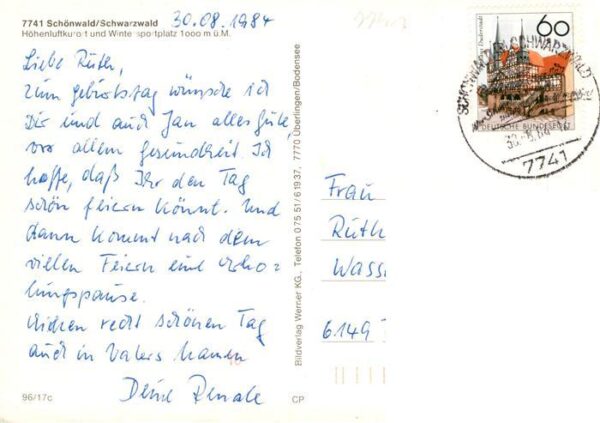 7741 Schönwald/Schwarzwald
30.08.1984
Höhenluftkurort und Wintersportplatz 1000 m ü.M.
Liebe Ruth,
zum Geburtstag wünsche ich
Dir und auch Jan alles Gute,
vor allem Gesundheit. Ich
hoffe, daß Ihr den Tag
schön feiern könnt. Und
dann kommt nach dem
vielen Feiern eine Erho-
lungspause.
recht schönen Tag
auch in Vaters Namen
Deine Renate
96/17c
CP
Bildverlag Werner KG., Telefon 07551/61937, 7770 Überlingen/Bodensee
60
DEUTSCHE BUNDESPOST
7741
Frau
Ruth
Wass
6149